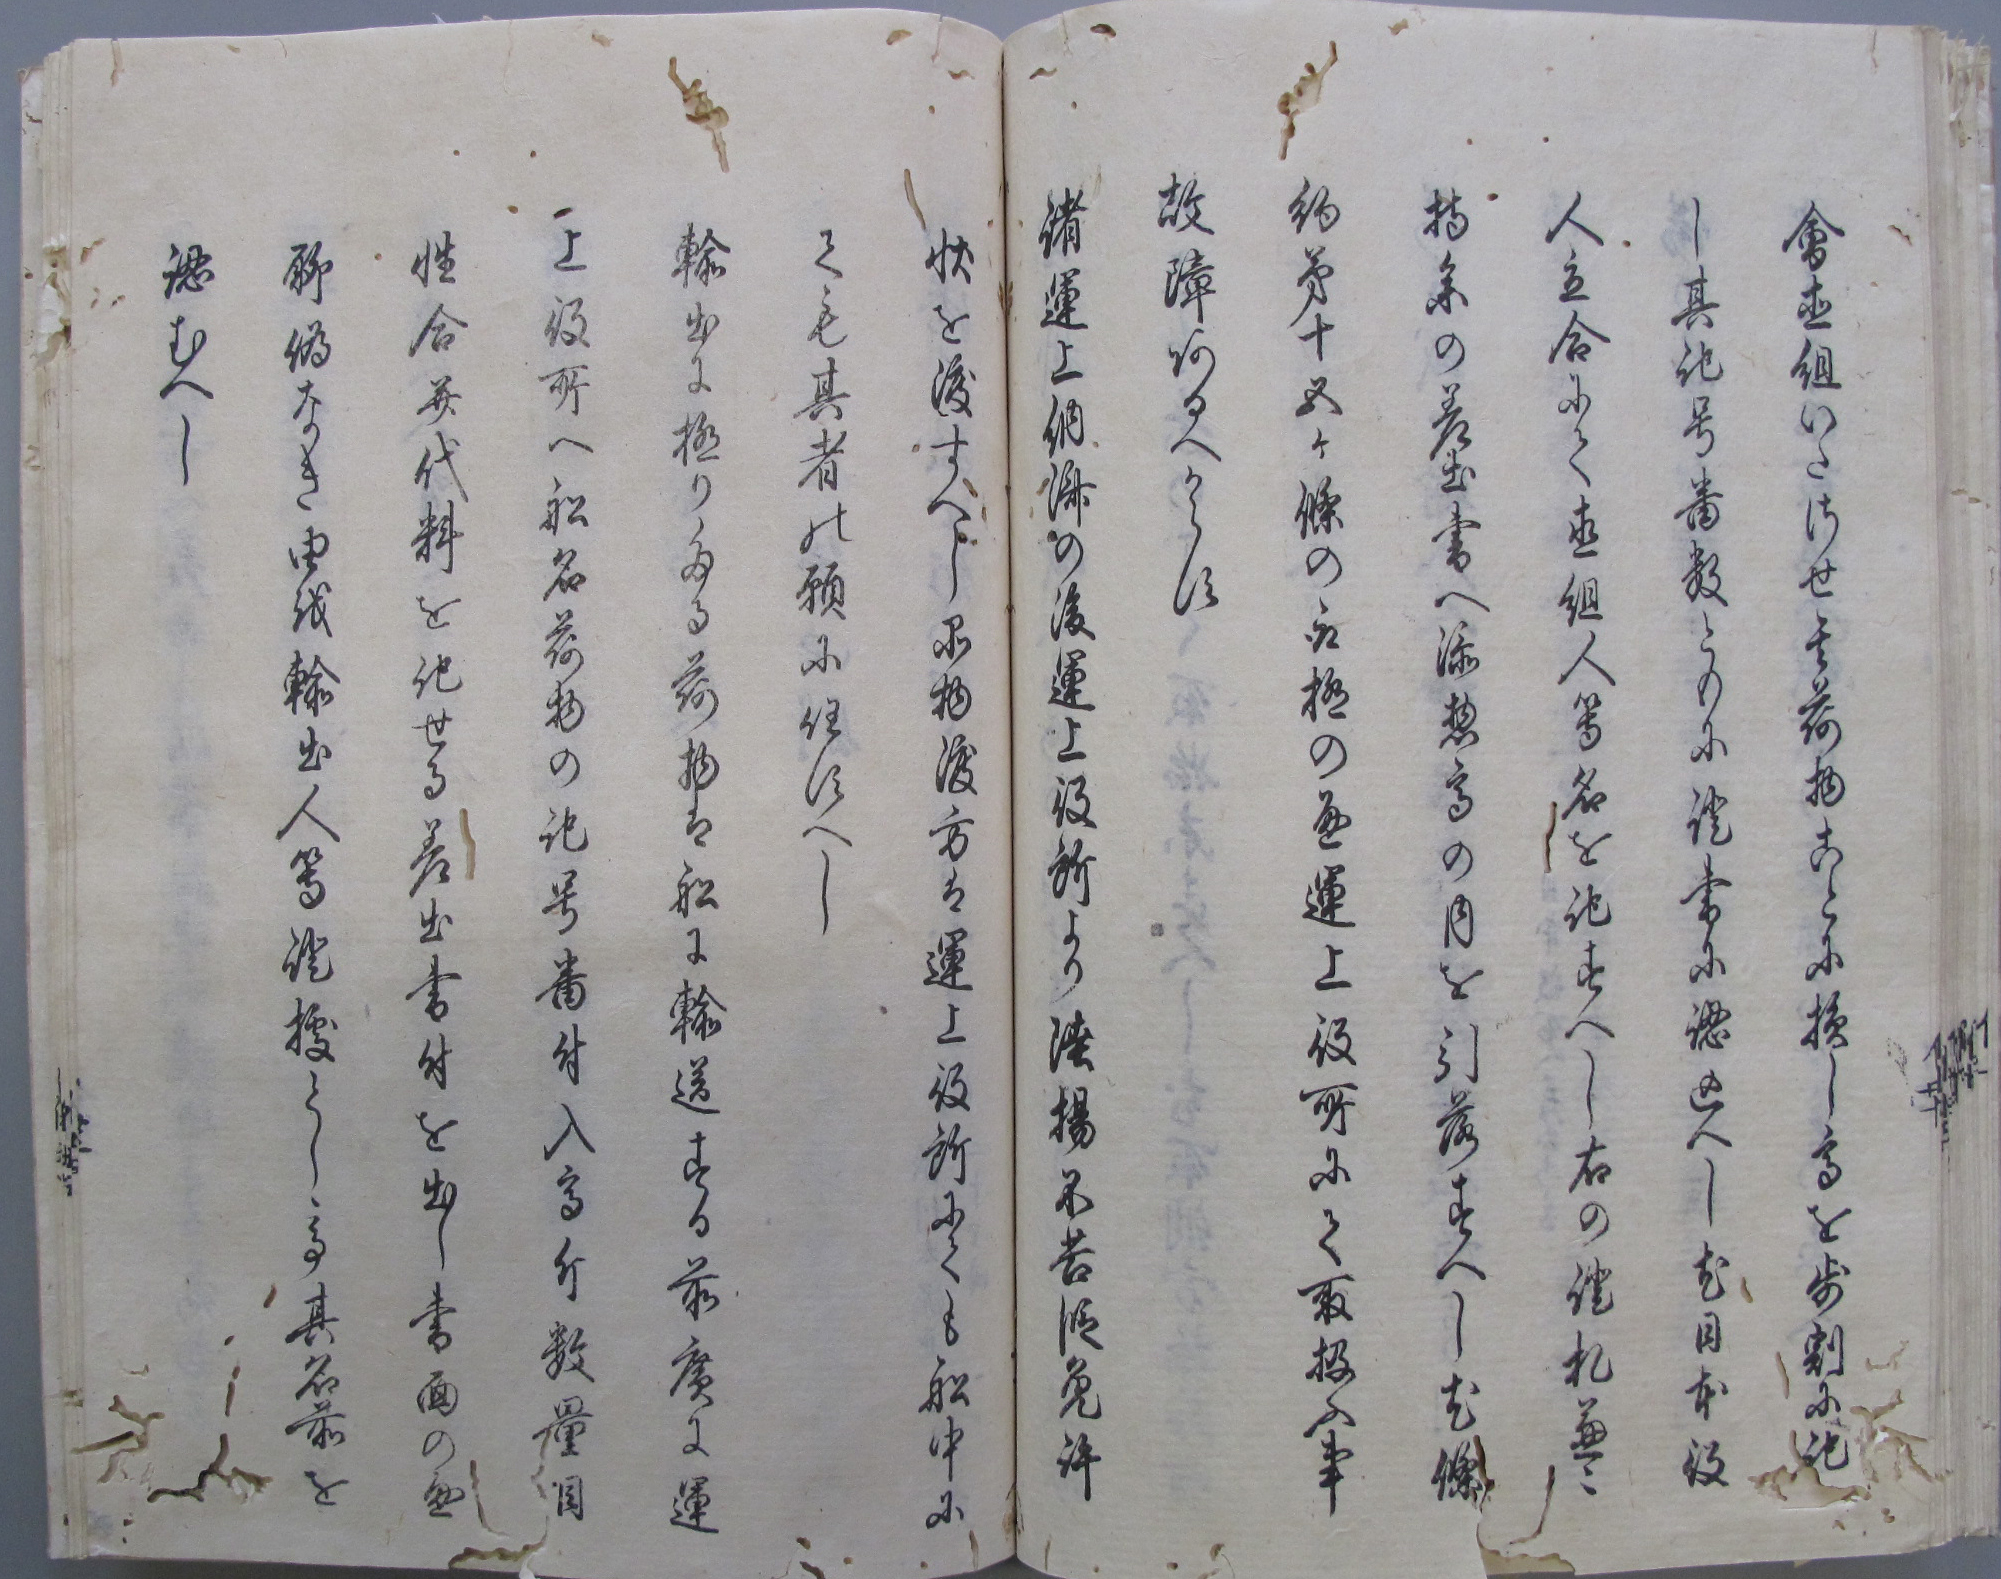 會直組いたさせ其荷物高に損し高を歩割に記
し其記号番数とのに證書に認置へし尤目本役
人立合にて直組人等名を記すへし右の證札兼て
持参の差出書へ添惣高の内を引落すへし尤條
約第十五ヶ條の取極の通運上役所にて取扱ふ事
故障あるへからす
諸運上納濟の後運上役所より陸揚不苦段免許
状を渡すへし品物渡方は運上役所にても船中に
ても其者の願に任すへし
輸出に極りたる荷物は船に輸送する前廣に運
上役所へ船名荷物の記号番付入高斤数量目
性合并代料を記せる差出書付を出し書面の通
聊偽なき由を輸出人等證據として其名前を
認むへし